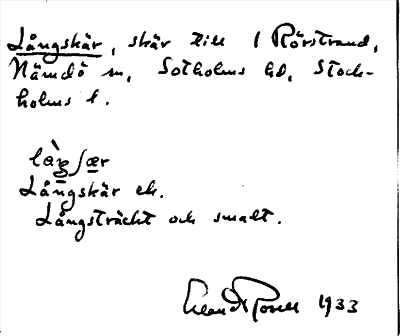 Långskär, skär till 1 Rörstrand,
Nämdö sn, Sotholms hd, Stock-
holms l.
Långskär ek.
Långsträckt och smalt.
1933